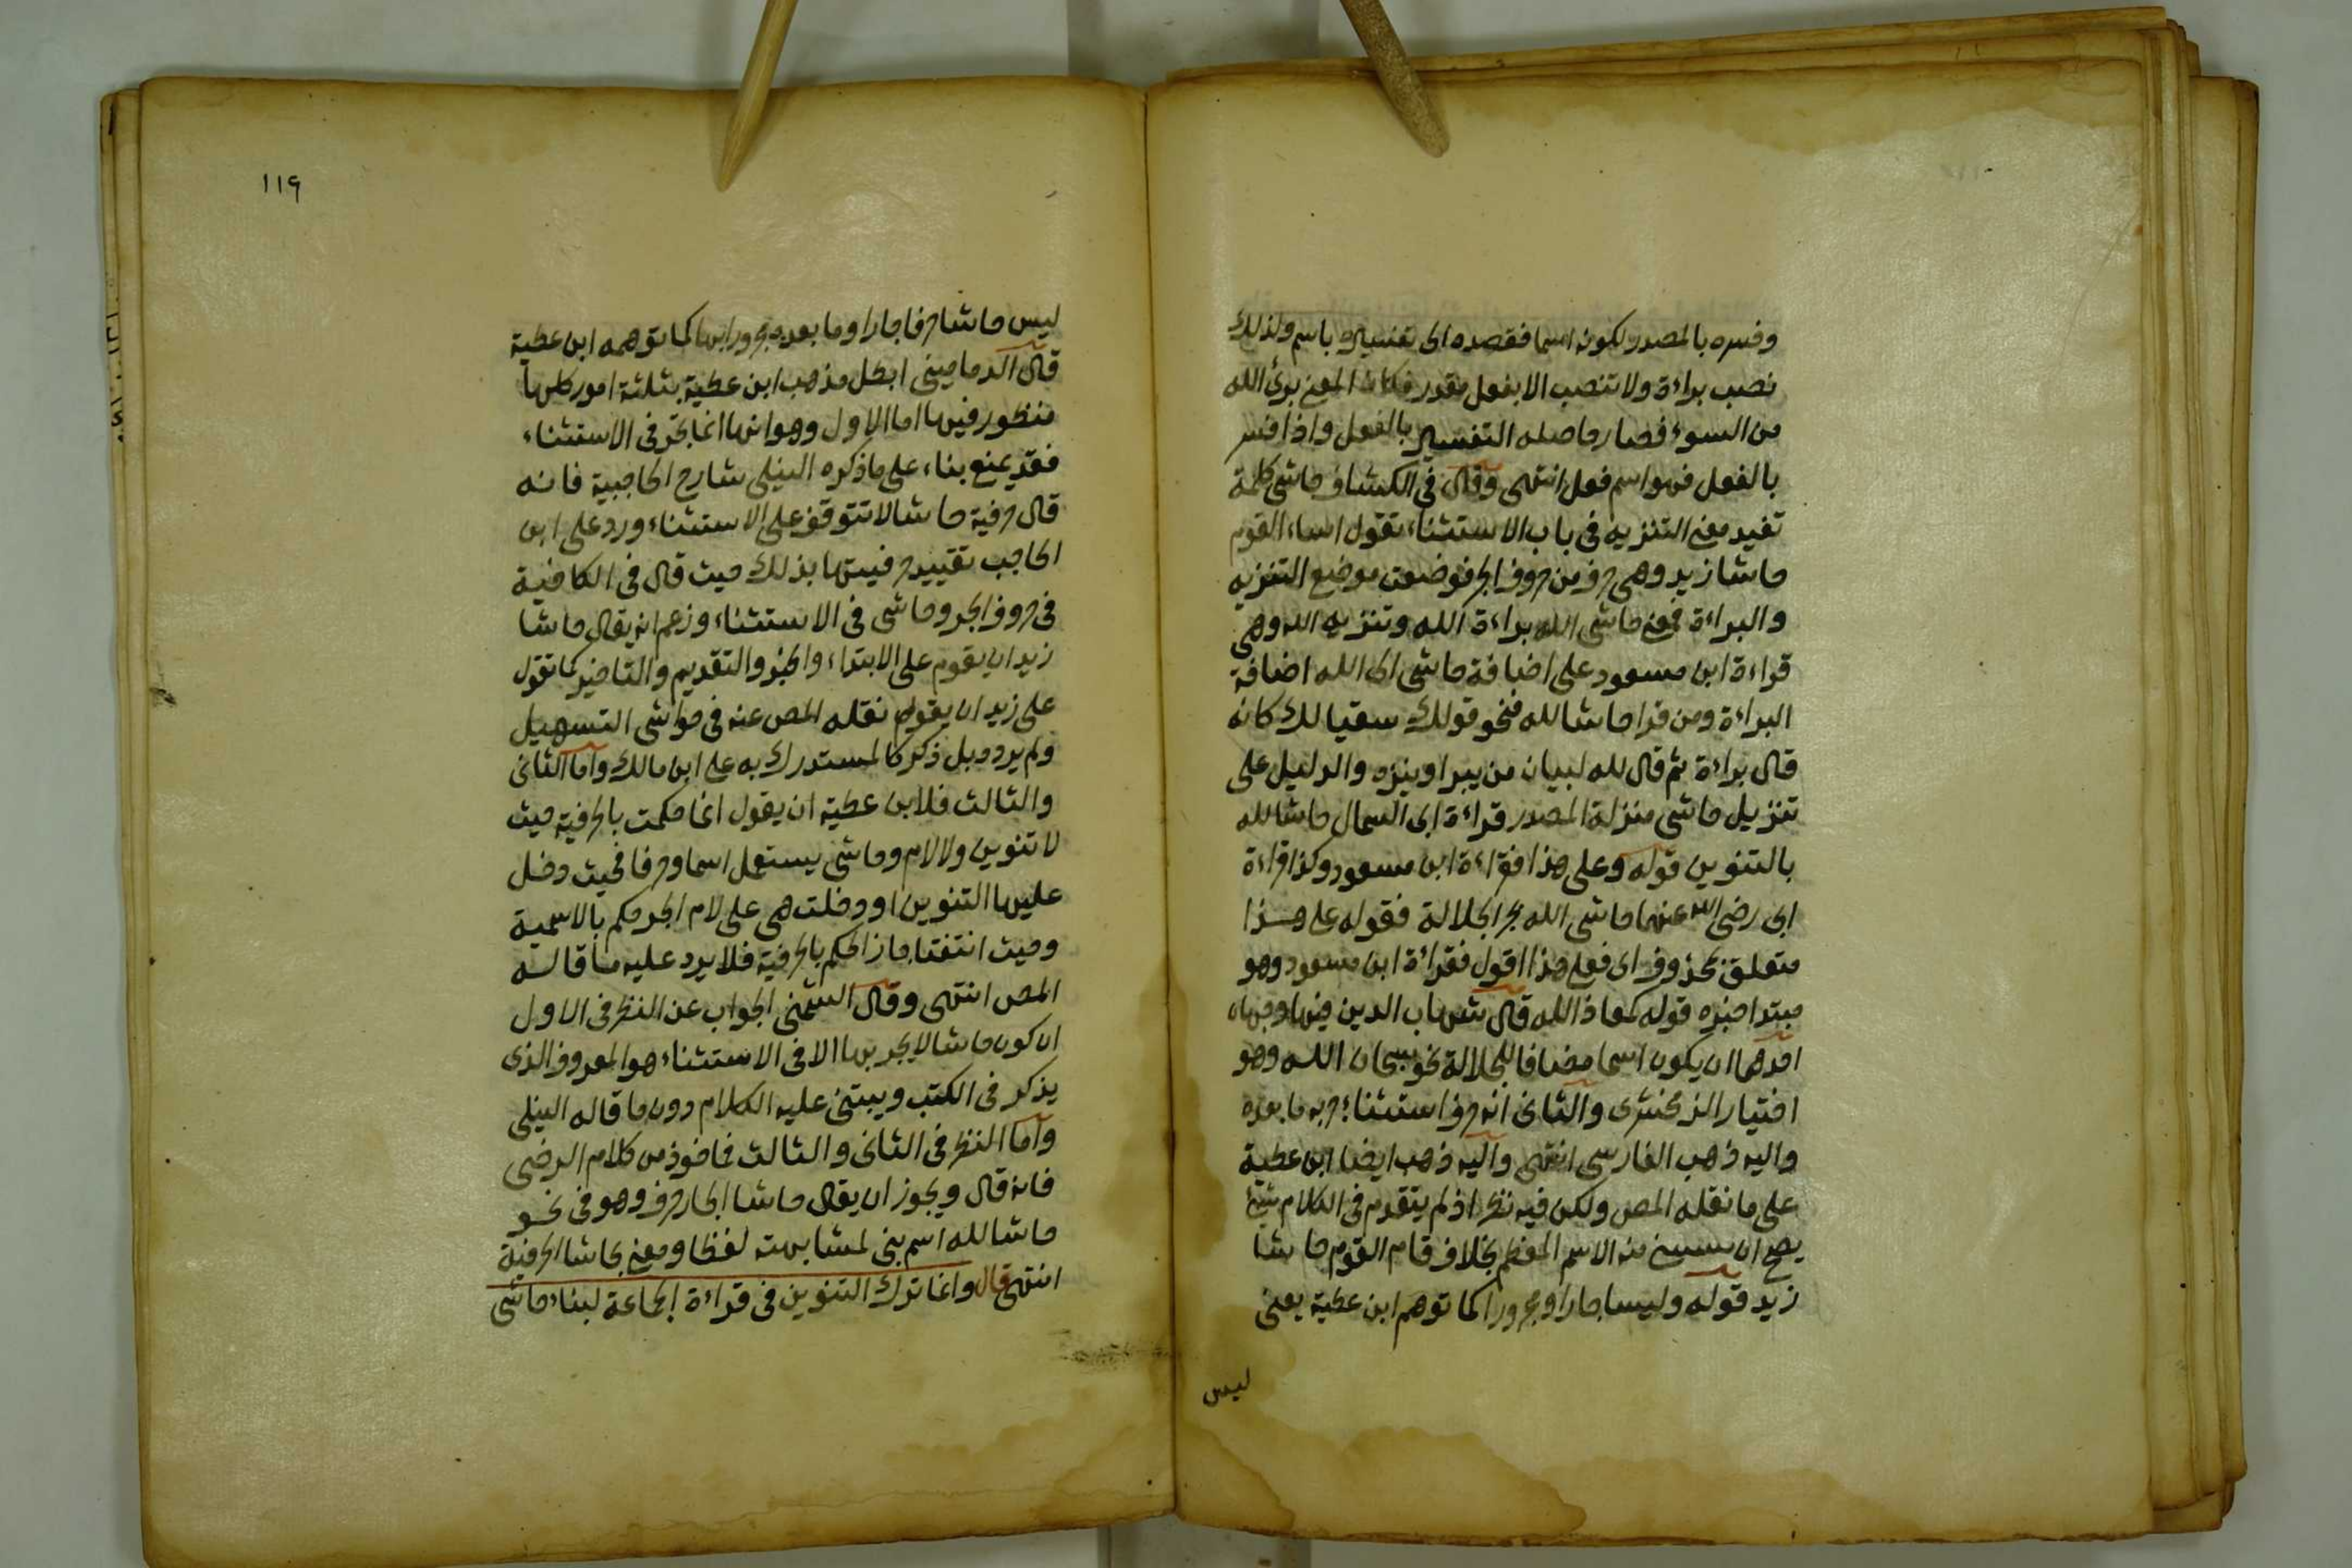 وفسره بالمصدر لكونه اسما فقصده الى تفسيره باسم ولذلك
نصب براءة ولا تنصب الا بفعل مقدر فكان المعنى برئ الله
من السوء فصار حاصله التفسير بالفعل واذا فسر
بالفعل فهو اسم فعل انتهى وقال فى الكشاف حاشى كلمة
تفيد معنى التنزيه فى باب الاستثناء تقول اساء القوم
حاشا زيد وهى حرف من حروف الجر فوضعت موضع التنزيه
والبراءة فمعنى حاشى الله براءة الله وتنزيه الله وهى
قراءة ابن مسعود على اضافة حاشى الى الله اضافة
البراءة ومن قرا حاشا لله فنحو قولك سقيا لك كانه
قال براءة ثم قال لله لبيان من يبرا وينزه والدليل على
تنزيل حاشى منزلة المصدر قراءة ابى السمال حاشا لله
بالتنوين قوله وعلى هذا فقراءة ابن مسعود وكذا قراءة
ابى رضى الله عنهما حاشى الله بجر الجلالة فقوله على هذا
متعلق بمحذوف اى فعلى هذا اقول فقراءة ابن مسعود وهو
مبتدا خبره قوله كمعاذ الله قال شهاب الدين فيها وجهان
احدهما ان يكون اسما مضافا للجلالة نحو سبحان الله وهو
اختيار الزمخشرى والثانى انه حرف استثناء جر به ما بعده
واليه ذهب الفارسى انتهى واليه ذهب ايضا ابن عطية
على ما نقله المص ولكن فيه نظر اذ لم يتقدم فى الكلام شئ
يصح ان يستثنى منه الاسم المعظم بخلاف قام القوم حاشا
زيد قوله وليسا جارا ومجرورا كما توهم ابن عطية يعنى
ليس
١١٩
ليس حاشا حرفا جارا وما بعده مجرورا بها كما توهمه ابن عطية
قال الدمامينى ابطل مذهب ابن عطية بثلثة امور كلها
منظور فيها اما الاول وهو انها انما تجر فى الاستثناء
فقد يمنع بناء على ما ذكره النيلى شارح الحاجبية فانه
قال حرفية حاشا لا تتوقف على الاستثناء ورد على ابن
الحاجب تقييد حرفيتها بذلك حيث قال فى الكافية
فى حروف الجر وحاشى فى الاستثناء وزعم انه يقال حاشا
زيد ان يقوم على الابتداء والخبر والتقديم والتاخير كما تقول
على زيد ان يقوم نقله المص عنه فى حواشى التسهيل
ولم يرده بل ذكر كالمستدرك به على ابن مالك واما الثانى
والثالث فلابن عطية ان يقول انما حكمت بالحرفية حيث
لا تنوين ولا لام وحاشى يستعمل اسما وحرفا فحيث دخل
عليها التنوين او دخلت هى على لام الجر حكم بالاسمية
وحيث انتفتا جاز الحكم بالحرفية فلا يرد عليه ما قاله
المص انتهى وقال الشمنى الجواب عن النظر فى الاول
ان كون حاشا لا يجر بها الا فى الاستثناء هو المعروف الذى
يذكر فى الكتب ويبتنى عليه الكلام دون ما قاله النيلى
واما النظر فى الثانى والثالث فماخوذ من كلام الرضى
فانه قال ويجوز ان يقال حاشا الجار حرف وهو فى نحو
حاشا لله اسم بنى لمشابهته لفظا ومعنى بحاشا الحرفية
انتهى قال وانما ترك التنوين فى قراءة الجماعة لبناء حاشى